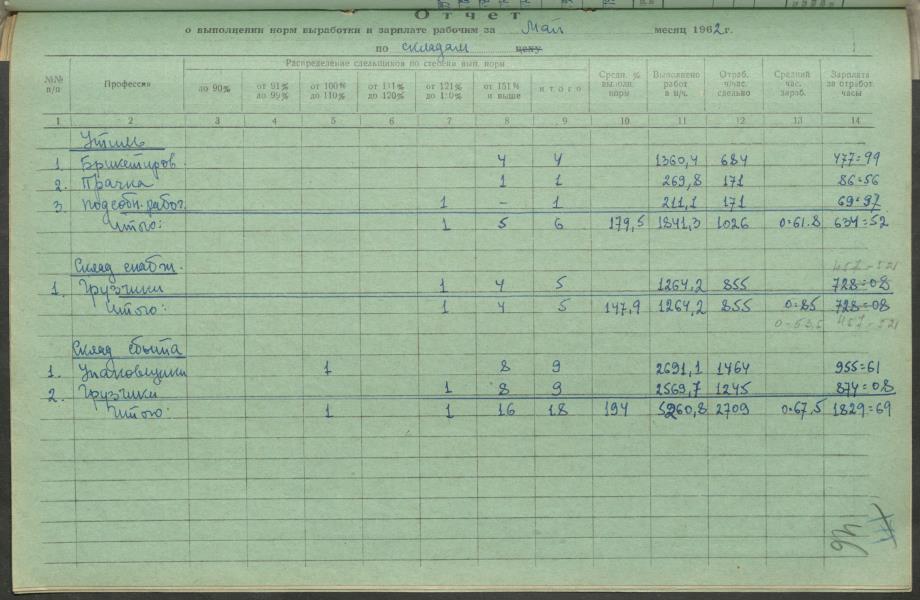 Отчет
о выполнении норм выработки и зарплате рабочим за Май месяц 1962 г.
по складам цеху
Распределение сдельщиков по степени вып. норм
№№ п/п Профессия до 90% от 91% до 99% от 100% до 110% от 111% до 120% от 121% до 150% от 151% и выше итого Средн. % выполн. норм Выполнено работ в н/ч. Отраб. ч/час. сдельно Средний час. зараб. Зарплата за отработ. часы
1 2 3 4 5 6 7 8 9 10 11 12 13 14
Утиль
1. Брикетиров. 4 4 1360,4 684 477=99
2. Прачка 1 1 269,8 171 86=56
3. подсобн. работ. 1 - 1 211,1 171 69=97
Итого: 1 5 6 179,5 1841,3 1026 0=61.8 634=52
Склад снабж.
457-521
1. Грузчики 1 4 5 1264,2 855 728=08
Итого: 1 4 5 147,9 1264,2 855 0=85 728=08
0-53.5 457-521
Склад сбыта
1. Упаковщики 1 8 9 2691,1 1464 955=61
2. Грузчики 1 8 9 2569,7 1245 874=08
Итого: 1 1 16 18 194 5260,8 2709 0=67.5 1829=69
46